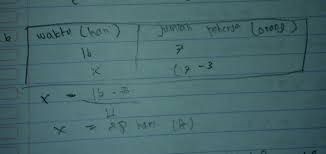 b waktu (hari) Jumlah pekerja (orang)
16 7
x (7 - 3
x = 16 . 7
4
x = 28 hari (A)